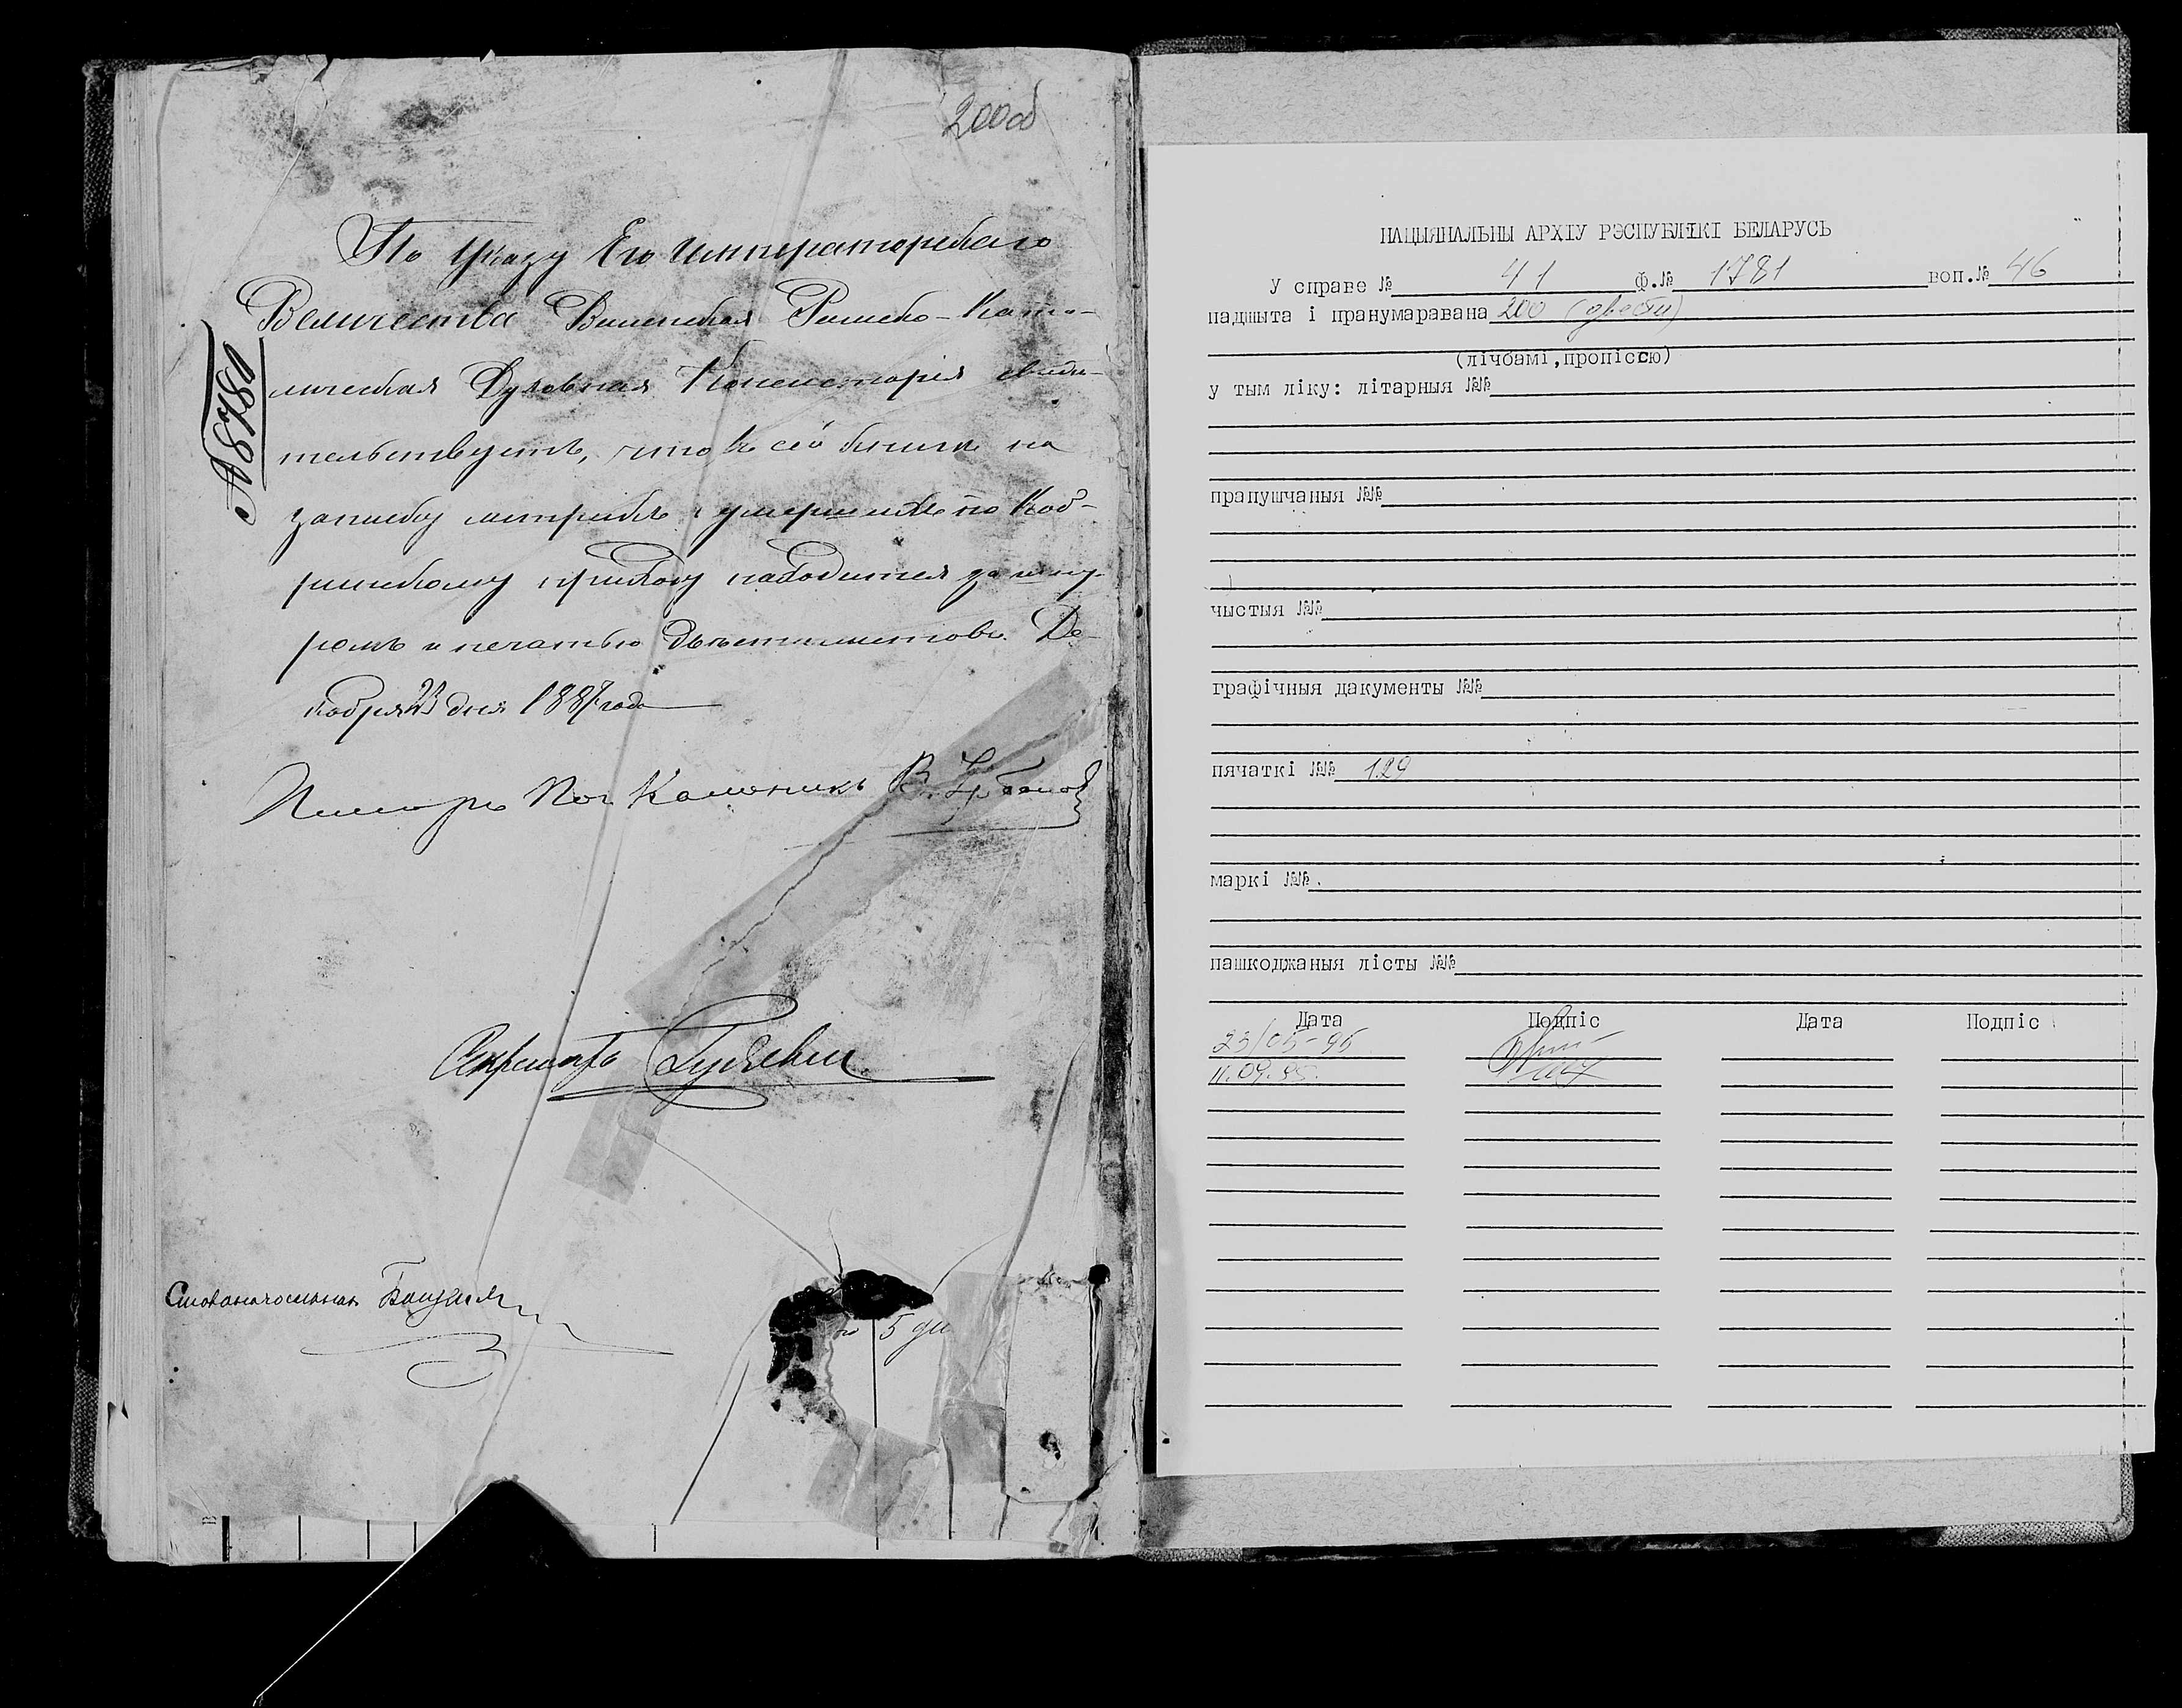 200об
По Указу Его Императорскаго
Величества Виленская Римско-Като-
лическая Духовная Консисторія свидѣ-
тельствуетъ, что въ сей книгѣ на
записку метрикъ умершихъ по Коб-
ринскому приходу находится за шну-
ромъ и печатью двѣсти листовъ. Де-
кабря 23 дня 1887 года
№ 8780
Каноникъ
Секретарь
Столоначальникъ
5
НАЦЫЯНАЛЬНЫ АРХІУ РЭСПУБЛІКІ БЕЛАРУСЬ
У справе № 41 ф.№ 1781 воп.№ 46
падшыта і пранумаравана 200 (двести)
(лічбамі,пропіссю)
у тым ліку: літарныя №№
прапушчаныя №№
чыстыя №№
графічныя дакументы №№
пячаткі №№ 129
маркі №№
пашкоджаныя лісты №№
Дата Подпіс Дата Подпіс
23/05-95
11.09.95